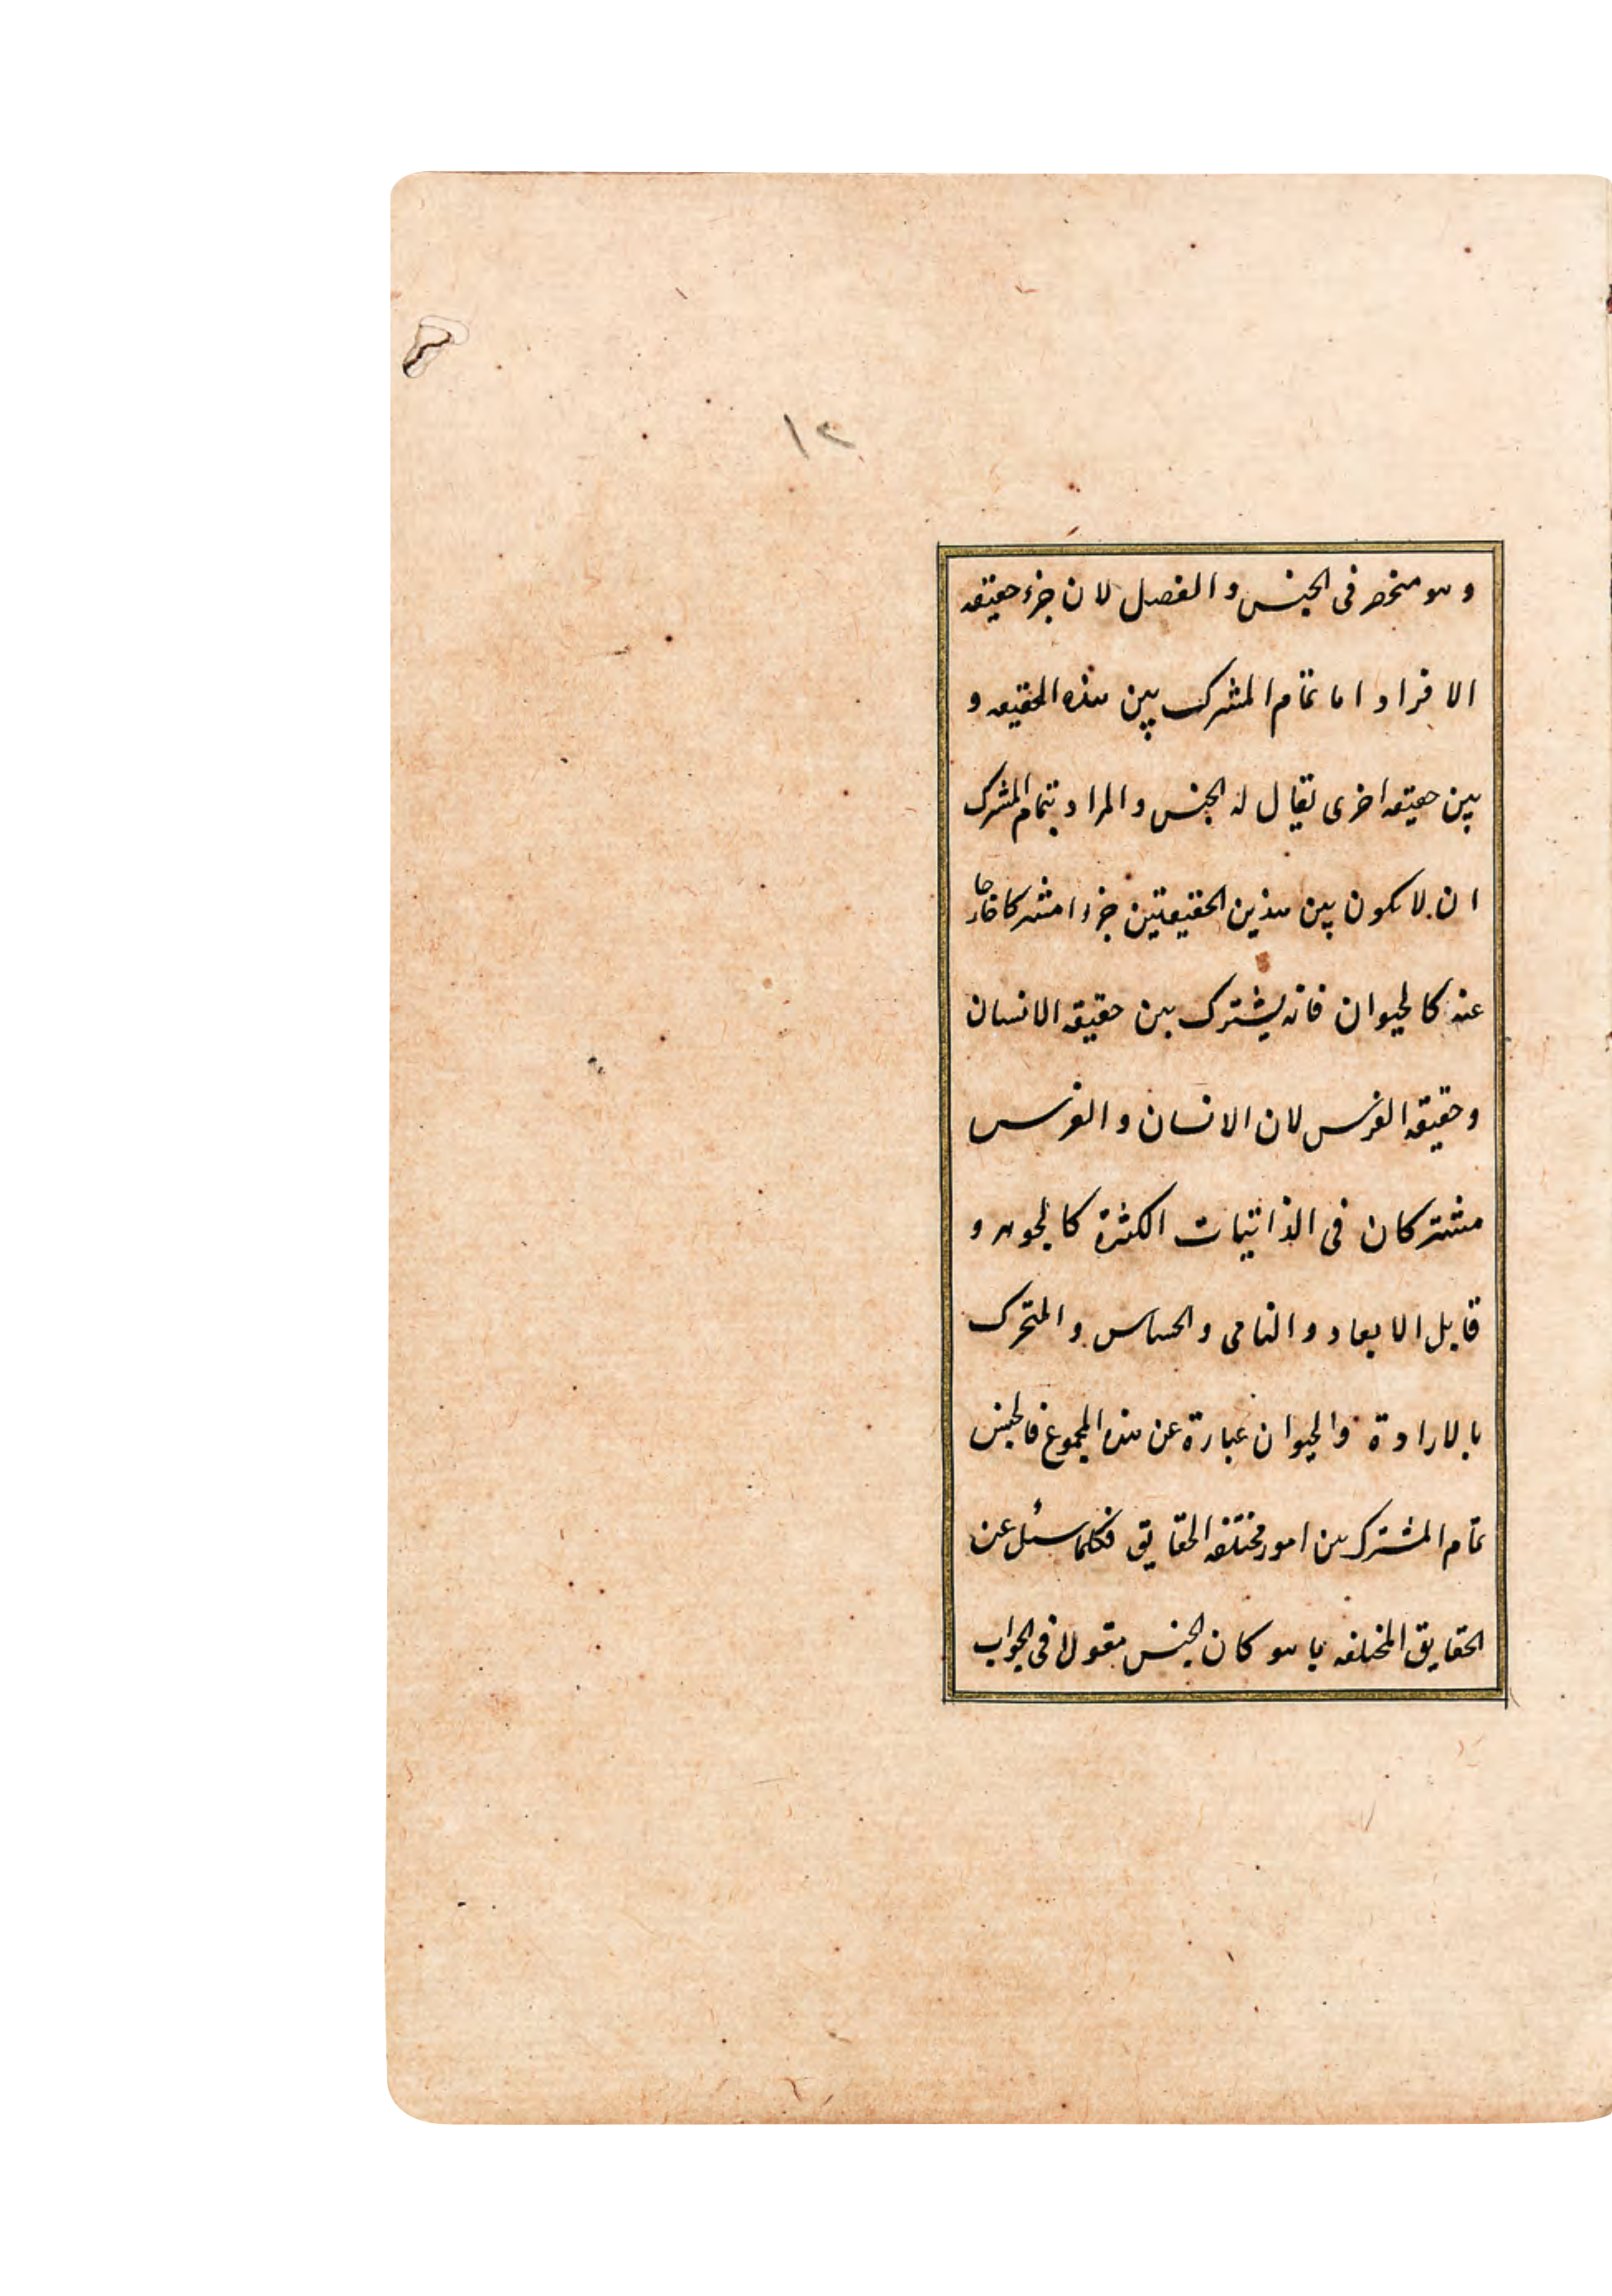 ١٢
وهو منحصر فى الجنس والفصل لان جزء حقيقه
الافراد اما تمام المشترك بين هذه الحقيقه و
بين حقيقه اخرى يقال له الجنس والمراد بتمام المشترك
ان لا يكون بين هذين الحقيقيتين جزءا مشتركا خارجا
عنه كالحيوان فانه يشترك بين حقيقه الانسان
وحقيقه الفرس لان الانسان والفرس
مشتركان فى الذاتيات الكثرة كالجوهر و
قابل الابعاد والنامى والحساس والمتحرك
بالارادة والحيوان عبارة عن هذه المجموع فالجنس
تمام المشترك بين امور مختلفه الحقايق فكلما سئل عن
الحقايق المختلفه بما هو كان الجنس مقولا فى الجواب